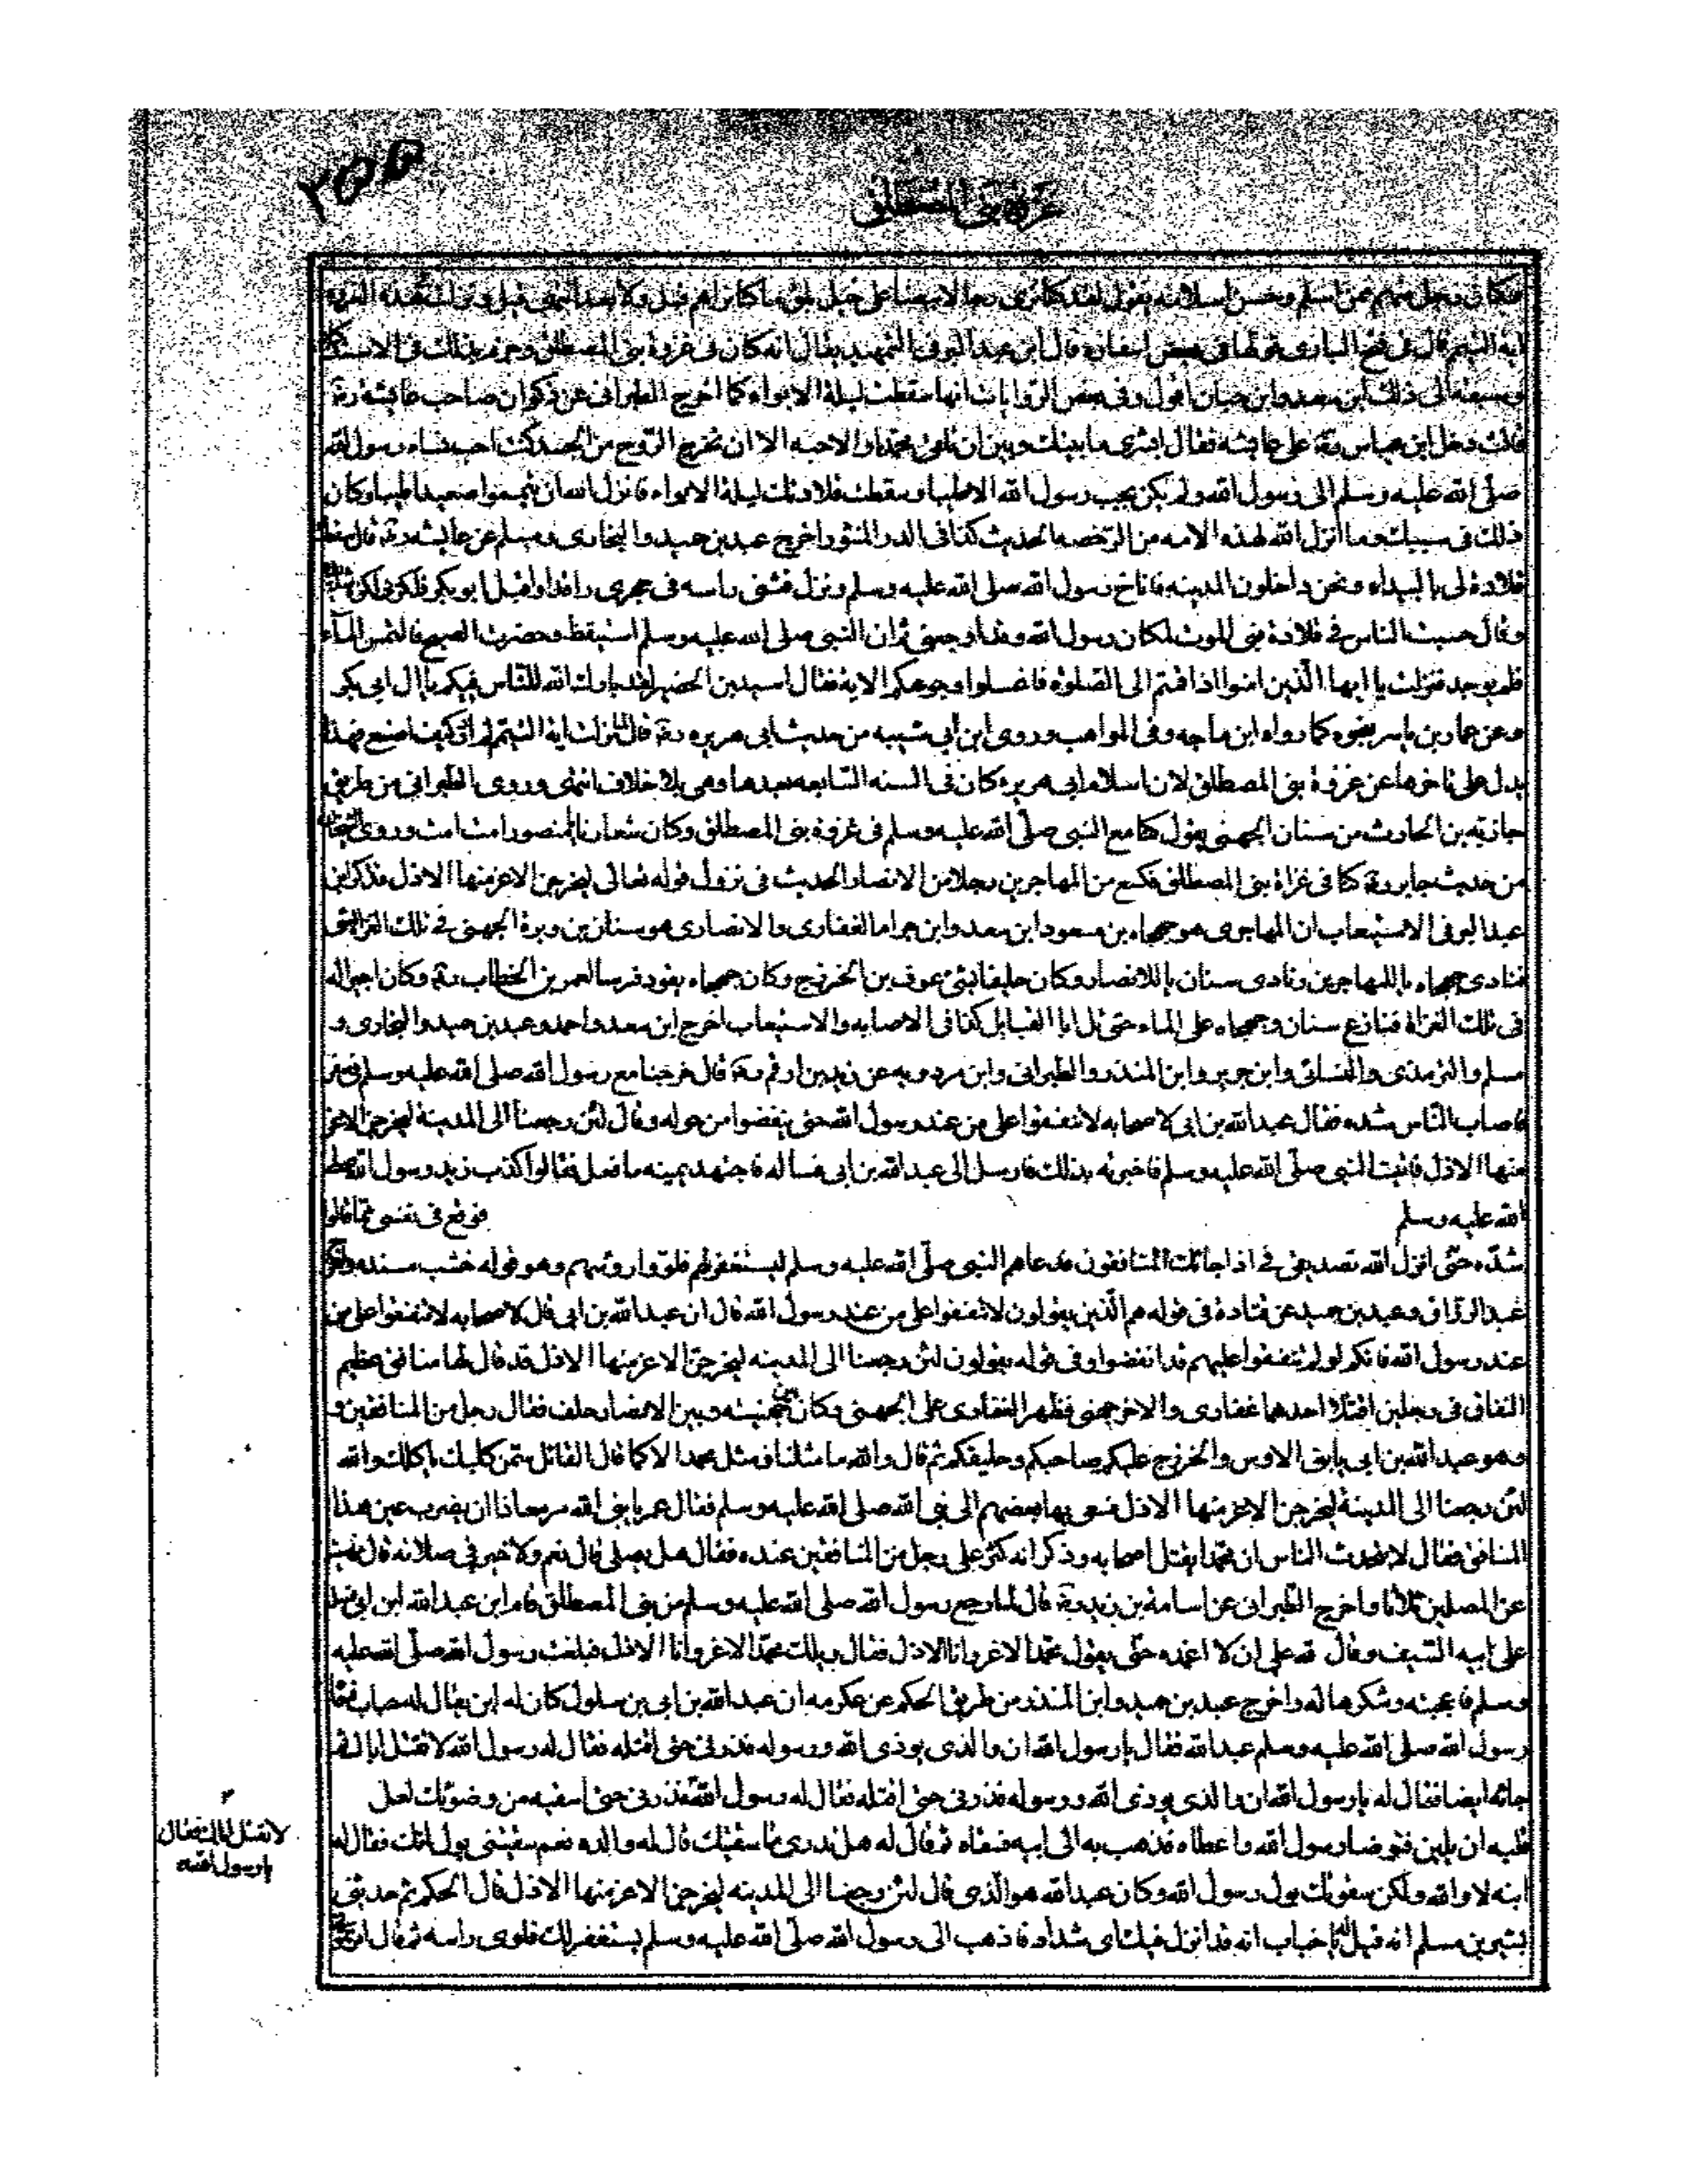 ٢٥٥
غزوة بنى المصطلق
فكان رجل منهم ممن اسلم وحسن اسلامه يقول لقد كنا نرى رجالا بيضا على خيل بلق ما كنا نراهم قبل ولا بعد انتهى قيل ونزلت بهذه الغزوة
اية التيمم قال فى فتح البارى قولها فى بعض اسفاره قال ابن عبد البر فى التمهيد يقال انه كان فى غزوة بنى المصطلق وجزم بذلك فى الاستذكار
وسبقه الى ذلك ابن سعد وابن حبان اقول وفى بعض الروايات انها سقطت ليلة الابواء كما اخرج الطبرانى عن ذكوان صاحب عايشه رضه
قالت دخل ابن عباس رضه على عايشه فقال ابشرى ما بينك وبين ان تلقى محمدا والاحبه الا ان تخرج الروح من الجسد كنت احب نساء رسول الله
صلى الله عليه وسلم الى رسول الله ولم يكن يحب رسول الله الا طيبا وسقطت قلادتك ليلة الابواء فانزل الله ان تيمموا صعيدا طيبا وكان
ذلك فى سببك وما انزل الله لهذه الامه من الرخصه الحديث كذا فى الدر المنثور اخرج عبد بن حميد والبخارى ومسلم عن عايشه رضه قال سقطت
قلادة لى بالبيداء ونحن داخلون المدينه فاناخ رسول الله صلى الله عليه وسلم ونزل فثنى راسه فى حجرى راقدا واقبل ابو بكر فلكزنى لكزة شديدة
وقال حبست الناس فى قلادة فبى الموت لمكان رسول الله وقد اوجعنى ثم ان النبى صلى الله عليه وسلم استيقظ وحضرت الصبح فالتمس الماء
فلم يوجد فنزلت يا ايها الذين امنوا اذا قمتم الى الصلوة فاغسلوا وجوهكم الاية فقال اسيد بن الحضير لقد بارك الله للناس فيكم يا ال ابى بكر
وعن عمار بن ياسر بنحوه كما رواه ابن ماجه وفى المواهب وروى ابن ابى شيبه من حديث ابى هريره رضه قال لما نزلت اية التيمم لم ادر كيف اصنع فهذا
يدل على تاخرها عن غزوة بنى المصطلق لان اسلام ابى هريره كان فى السنه السابعه بعدها وهى بلا خلاف انتهى وروى الطبرانى من طريق
خارجه بن الحارث من سنان الجهنى يقول كنا مع النبى صلى الله عليه وسلم فى غزوة بنى المصطلق وكان شعارنا يا منصور امت امت وروى الشيخان
من حديث جابر رضه كنا فى غزاة بنى المصطلق فكسع من المهاجرين رجلا من الانصار الحديث فى نزول قوله تعالى ليخرجن الاعز منها الاذل فذكر ابن
عبد البر فى الاستيعاب ان المهاجرى هو جهجاه بن مسعود ابن سعد وابن حرام الغفارى والانصارى هو سنان بن وبرة الجهنى فى تلك الغزاة
فنادى جهجاه يا للمهاجرين ونادى سنان يا للانصار وكان حليفا لبنى عوف بن الخزرج وكان جهجاه يقود فرسا لعمر بن الخطاب رضه وكان اجيرا له
فى تلك الغزاة فتنازع سنان وجهجاه على الماء حتى ناديا القبايل كذا فى الاصابه والاستيعاب اخرج ابن سعد واحمد وعبد بن حميد والبخارى و
مسلم والترمذى والنسائى وابن جرير وابن المنذر والطبرانى وابن مردويه عن زيد بن ارقم رضه قال خرجنا مع رسول الله صلى الله عليه وسلم فى سفر
فاصاب الناس شده فقال عبد الله بن ابى لاصحابه لا تنفقوا على من عند رسول الله حتى ينفضوا من حوله وقال لئن رجعنا الى المدينة ليخرجن الاعز
منها الاذل فاتيت النبى صلى الله عليه وسلم فاخبرته بذلك فارسل الى عبد الله بن ابى فساله فاجتهد يمينه ما فعل فقالوا كذب زيد رسول الله صلى
الله عليه وسلم فوقع فى نفسى مما قالوا
شده حتى انزل الله تصديقى فى اذا جاءك المنافقون فدعاهم النبى صلى الله عليه وسلم ليستغفر لهم فلووا رؤسهم وهو قوله خشب مسنده واخرج
عبد الرزاق وعبد بن حميد عن قتادة فى قوله هم الذين يقولون لا تنفقوا على من عند رسول الله قال ان عبد الله بن ابى قال لاصحابه لا تنفقوا على من
عند رسول الله فانكم لو لم تنفقوا عليهم قد انفضوا وفى قوله يقولون لئن رجعنا الى المدينه ليخرجن الاعز منها الاذل قد قال لها منافق عظيم
النفاق فى رجلين اقتتلا احدهما غفارى والاخر جهنى فظهر الغفارى على الجهنى وكان بين جهينه وبين الانصار حلف فقال رجل من المنافقين و
وهو عبد الله بن ابى يا بنى الاوس والخزرج عليكم صاحبكم وحليفكم ثم قال والله ما مثلنا ومثل محمد الا كما قال القائل سمن كلبك ياكلك والله
لئن رجعنا الى المدينة ليخرجن الاعز منها الاذل فسعى بها بعضهم الى نبى الله صلى الله عليه وسلم فقال عمر يا نبى الله مر معاذا ان يضرب عنق هذا
المنافق فقال لا يتحدث الناس ان محمدا يقتل اصحابه وذكر انه كثر على رجل من المنافقين عنده فقال هل يصلى قال نعم ولا خير فى صلاته قال نهيت
عن المصلين ثلاثا واخرج الطبرانى عن اسامة بن زيد رضه قال لما رجع رسول الله صلى الله عليه وسلم من بنى المصطلق قام ابن عبد الله ابن ابى فسل
على ابيه السيف وقال لله على ان لا اغمده حتى يقول محمد الاعز وانا الاذل فقال ويلك محمد الاعز وانا الاذل فبلغت رسول الله صلى الله عليه
وسلم فاعجبته وشكرها له واخرج عبد بن حميد وابن المنذر من طريق الحكم عن عكرمه ان عبد الله بن ابى بن سلول كان له ابن يقال له حباب فسماه
رسول الله صلى الله عليه وسلم عبد الله فقال يا رسول الله ان والدى يوذى الله ورسوله فذرنى حتى اقتله فقال له رسول الله لا تقتل اباك ثم
جائه ايضا فقال له يا رسول الله ان والدى يوذى الله ورسوله فذرنى حتى اقتله فقال له رسول الله فذرنى حتى اسقيه من وضوئك لعل
قلبه ان يلين فتوضا رسول الله واعطاه فذهب به الى ابيه فسقاه ثم قال له هل تدرى ما سقيتك قال له والده نعم سقيتنى بول امك فقال له
ابنه لا والله ولكن سقيتك بول رسول الله وكان عبد الله هو الذى قال لئن رجعنا الى المدينه ليخرجن الاعز منها الاذل قال الحكم ثم حدثنى
بشير بن مسلم انه قيل له يا حباب انه قد انزل فيك اى شداد فاذهب الى رسول الله صلى الله عليه وسلم يستغفر لك فلوى راسه ثم قال امرتمونى
لا تقتل اباك فقال
يا رسول الله